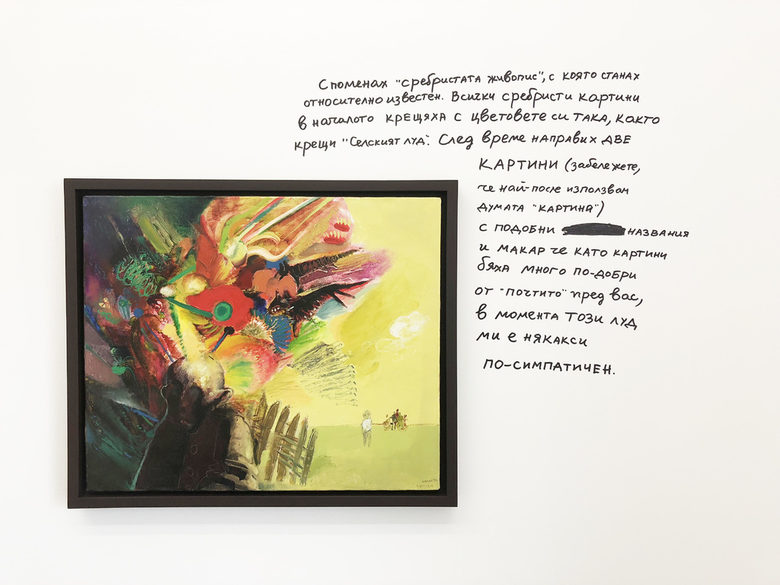 Споменах "сребристата живопис", с която станах
относително известен. Всички сребристи картини
в началото крещяха с цветовете си така, както
крещи "Селският луд". След време направих две
картини (забележете,
че най-после използвам
думата "картина")
с подобни названия
и макар че като картини
бяха много по-добри
от "почтито" пред вас,
в момента този луд
ми е някакси
по-симпатичен.